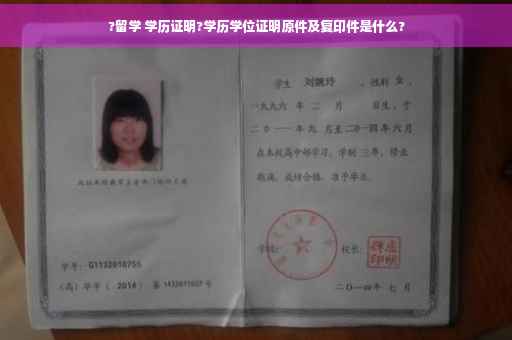 ?留学 学历证明?学历学位证明原件及复印件是什么?
学生 刘婉玲 ，性别 女 ，
一九九六 年 二 月 日生，于
二〇一一年九 月至二〇一四年 六月
在本校高中部学习，学制 三年，修业
期满，成绩合格，准予毕业。
学号： G1132010755
（高）毕字（ 2014 ）第 1432011037 号
学校：
校长：
二〇一四年 七 月